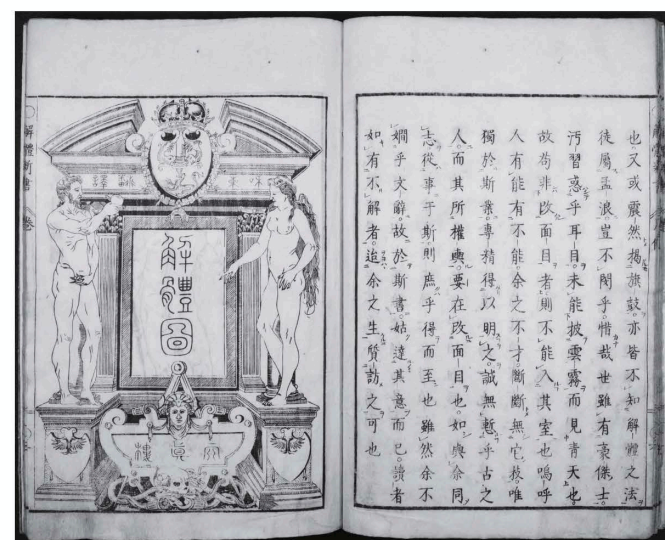 也又或震然揭旗鼓。亦皆不知解體之法。
徒屬孟浪豈不閔乎。惜哉世雖有豪傑士。
汚習惑乎耳目。未能披雲霧而見青天也。
故苟非改面目者。則不能入其室也。嗚呼
人有能有不能。余之不才斷斷無它技。唯
獨於斯業。專精得以明之。誠無慙乎古之
人。而其所權輿。要在改面目也。如與余同
志。從事于斯。則庶乎得而至也。雖然余不
嫺乎文辭。故於斯書。姑達其意而已。讀者
如有不解者。迨余之生質訪之可也
解體圖
解體新書 卷